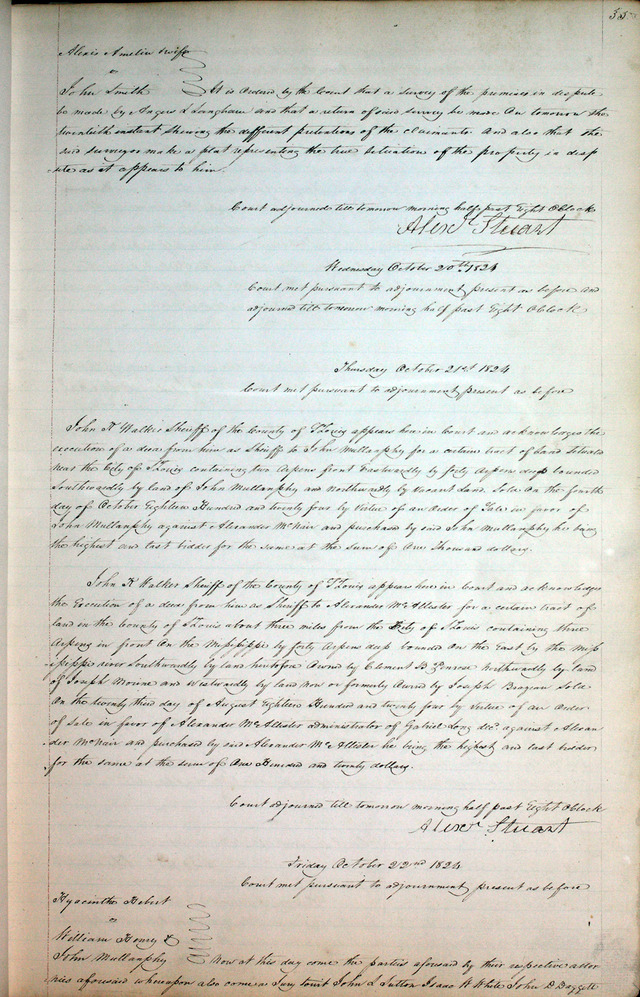 55
Alexis Amelin & wife
vs
John Smith It is Ordered by the Court that a survey of the premises in dispute
be made by Angus L Langham and that a return of said survey be made On tomorrow the
twentieth instant shewing the different pretentions of the claimants. And also that the
said surveyor make a plat representing the true situation of the property in disp
ute as it appears to him.
Court adjourned till tomorrow morning half past Eight Oclock
Alexr Stuart
Wednesday October 20th 1824
Court met pursuant to adjournment, present as before and
adjourned till tomorrow morning half past Eight Oclock
Thursday October 21st 1824
Court met pursuant to adjournment, present as before
John K Walker Sheriff of the County of St Louis appears here in Court and acknowledges the
execution of a deed from him as Sheriff to John Mullanphy for a certain tract of land situate
near the City of St Louis containing two Arpens front Eastwardly by forty Arpens deep bounded
Southwardly by land of John Mullanphy and Northwardly by Vacant Land. Sold On the fourth
day of October Eighteen Hundred and twenty four by Virtue of an Order of Sale in favor of
John Mullanphy against Alexander McNair and purchased by said John Mullanphy he being
the highest and last bidder for the same at the sum of One Thousand dollars.
John K Walker Sheriff of the County of St Louis appears here in Court and acknowledges
the Execution of a deed from him as Sheriff to Alexander McAllister for a certain tract of
land in the County of St Louis about three miles from the City of St Louis containing three
Arpens in front On the Missisippi by forty Arpens deep bounded On the East by the Miss
isippi river Southwardly by land heretofore Owned by Clement B Penrose Northwardly by land
of Joseph Morine and Westwardly by land now or formerly Owned by Joseph Brazeau Sold
On the twenty third day of August Eighteen Hundred and twenty four by Virtue of an Order
of sale in favor of Alexander McAllister administrator of Gabriel Long decd. against Alexan
der McNair and purchased by said Alexander McAllister he being the highest and last bidder
for the same at the sum of One Hundred and twenty dollars.
Court adjourned till tomorrow morning half past Eight Oclock
Alexr Stuart
Friday October 22nd 1824
Court met pursuant to adjournment, present as before
Hyacinthe Hebert
vs
William Henry &
John Mullanphy Now at this day come the parties aforesaid by their respective attor
nies aforesaid whereupon also comes a Jury towit John L Sutton Isaac W White John D Daggett